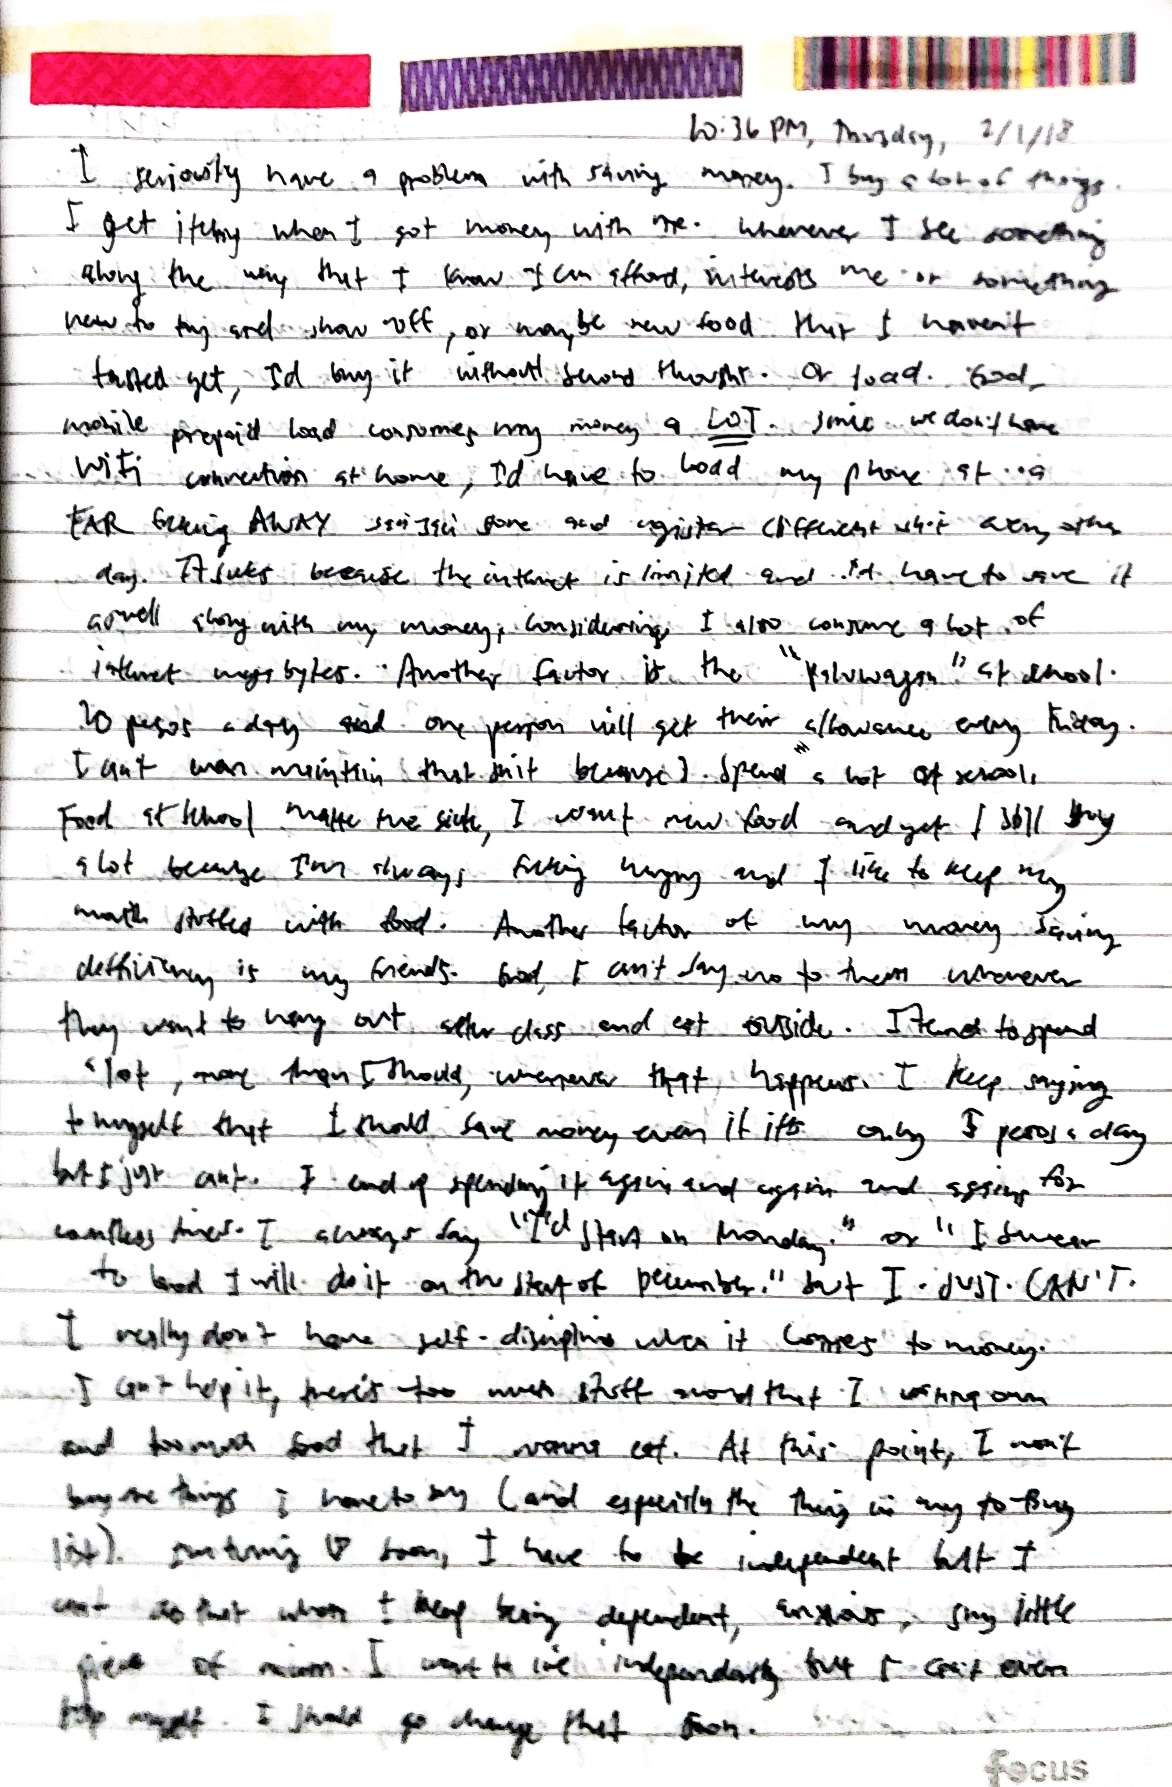 10:36 PM, Thursday, 2/1/18
I seriously have a problem with saving money. I buy a lot of things.
I get itchy when I got money with me. Whenever I see something
along the way that I know I can afford, interests me or something
new to try and show off, or maybe new food that I haven't
tasted yet, I'd buy it without second thought. Or load. God,
mobile prepaid load consumes my money a LOT. Since we don't have
WiFi connection at home, I'd have to load my phone at a
FAR fucking AWAY store and register different shit every other
day. It sucks because the internet is limited and I'd have to save it
aswell along with my money, considering I also consume a lot of
internet megabytes. Another factor is the "Paluwagan" at school.
20 pesos a day and one person will get their "allowance" every Friday.
I can't even maintain that shit because I spend a lot at school.
Food at school make me sick, I want new food and yet I still buy
a lot because I'm always fucking hungry and I like to keep my
mouth stuffed with food. Another factor of my money saving
defficiency is my friends. God, I can't say no to them whenever
they want to hang out after class and eat outside. I tend to spend
a lot, more than I should, whenever that happens. I keep saying
to myself that I should save money even if it's only 5 pesos a day
but I just can't. I end up spending it again and again and again for
countless times. I always say "I'd start on Monday." or "I swear
to God I will do it on the start of December." but I. JUST. CAN'T.
I really don't have self-discipline when it comes to money.
I can't help it, there's too much stuff around that I wanna own
and too much food that I wanna eat. At this point, I won't
buy the things I have to buy (and especially the thing in my to-buy
list). I'm turning 17 soon, I have to be independent but I
can't do that when I keep being dependent, anxious, little
piece of I want to live independently but I can't even
myself. I should go change that soon.
focus